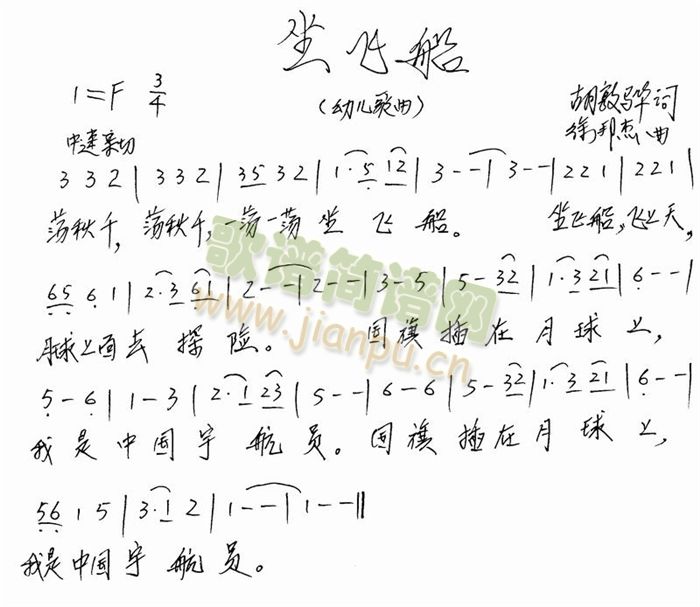 坐飞船
1=F 3/4
(幼儿歌曲)
胡敦骅词
徐邦杰曲
中速亲切
3 3 2 | 3 3 2 | 35 32 | 1· 5 12 | 3 - - | 3 - - | 2 2 1 | 2 2 1 |
荡秋千, 荡秋千, 一荡一荡 坐 飞 船。 坐飞船, 飞上天,
65 6 1 | 2·3 61 | 2 - - | 2 - - | 3 - 5 | 5 - 32 | 1·3 21 | 6 - - |
月球上面去 探 险。 国旗插在月球上,
5 - 6 | 1 - 3 | 2·1 23 | 5 - - | 6 - 6 | 5 - 32 | 1·3 21 | 6 - - |
我是中国宇航员。国旗插在月球上,
56 1 5 | 3·1 2 | 1 - - | 1 - - ||
我是中国宇航员。
歌谱简谱网
www.jianpu.cn